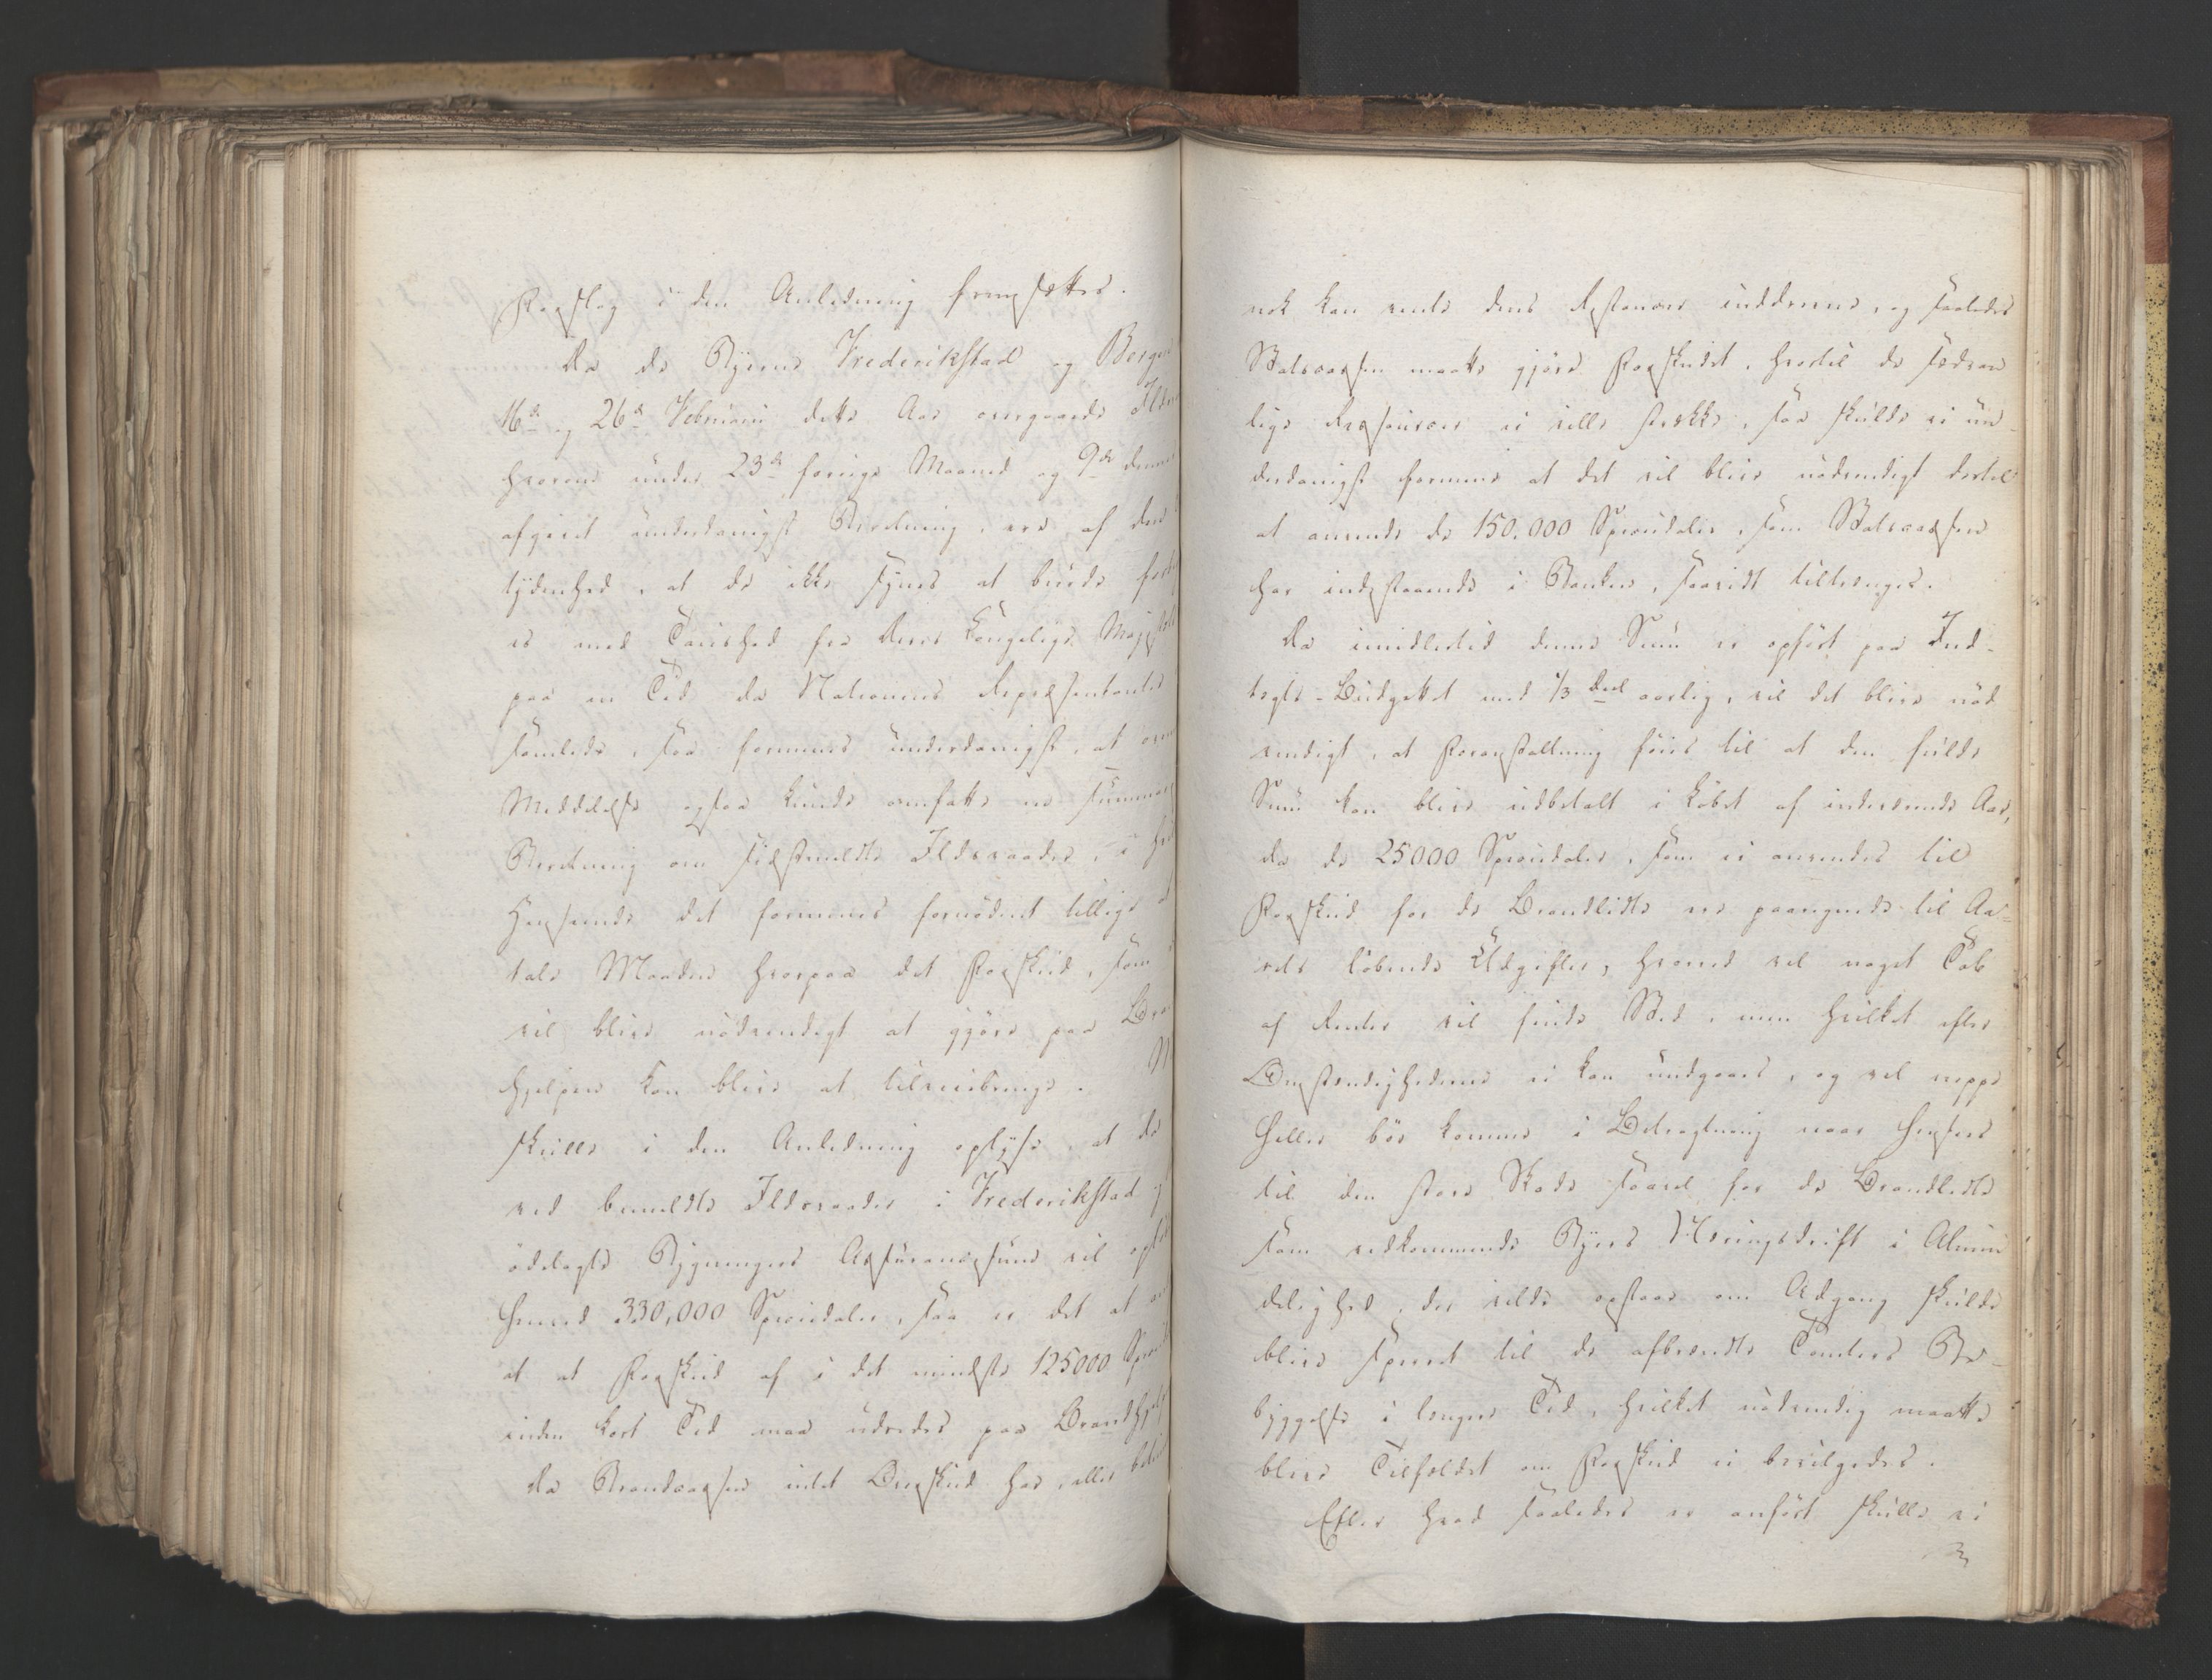 Forslag i den Anledning fremsættes.
Da de Byerne Frederikstad og Bergen
16de og 26de Februarii dette Aar overgaaede Ildsv
hvorom under 23de forrige Maaned og 9de dennes
afgivet underdanigst Beretning, ere af den
tydenhed, at de ikke synes at burde forbi
es med Taushed fra Deres Kongelige Majestæt
paa en Tid da Nationens Repræsentanter
samlede, saa formenes underdanigst, at oven
Meddelelse ogsaa kunde omfatte en summar
Beretning om sidstmeldte Ildsvaader, i
Henseende det formenes fornødent tillige
tale Maaden hvorpaa det Forskud, som
vil blive nödvendigt at gjöre paa Bra
hjelpen kan blive at tilveiebringe.
skulle i den Anledning oplyse, at de
ved bemeldte Ildsvaader i Frederikstad
ödelagte Bygningers Assurancesum vil
henved 330,000 Speciedaler, saa er det at
at et Forskud af i det mindste 125000 Specied
inden kort Tid maa udredes paa Brandhjelp
da Brandcassen intet Overskud har, eller
nok kan vente dens Restancer inddrevne, og saaledes
Statscassen maatte gjöre Forskudet, hvortil de sædvan
lige Ressourcer ei ville strække, saa skulde vi un-
derdanigst formene at det vil blive nödvendigt dertil
at anvende de 150.000 Speciedaler, som Statscassen
har indestaaende i Banken, saavidt tiltrænges.
Da imidlertid denne Sum er opfört paa Ind-
tægts-Budgettet med 1/3 Deel aarlig, vil det blive nöd
vendigt, at Foranstaltning föies til at den fulde
Sum kan blive udbetalt i Löbet af indeværende Aar,
da de 25000 Speciedaler, som ei anvendes til
Forskud for de Brandlidte ere paaregnede til Aa-
rets löbende Udgifter, hvorved vel noget Tab
af Renter vil finde Sted, men hvilket efter
Omstændighederne ei kan undgaaes, og vel neppe
heller bör komme i Betragtning naar hensees
til den store Skade saavel for de Brandlidte
som vedkommende Byers Næringsdrift i Almin
delighed, der vilde opstaae om Adgang skulde
blive spærret til de afbrændte Tomters Be-
byggelse i længere Tid, hvilket nödvendig maatte
blive Tilfældet om Forskud ei bevilgedes.
Efter hvad saaledes er anfört skulle vi